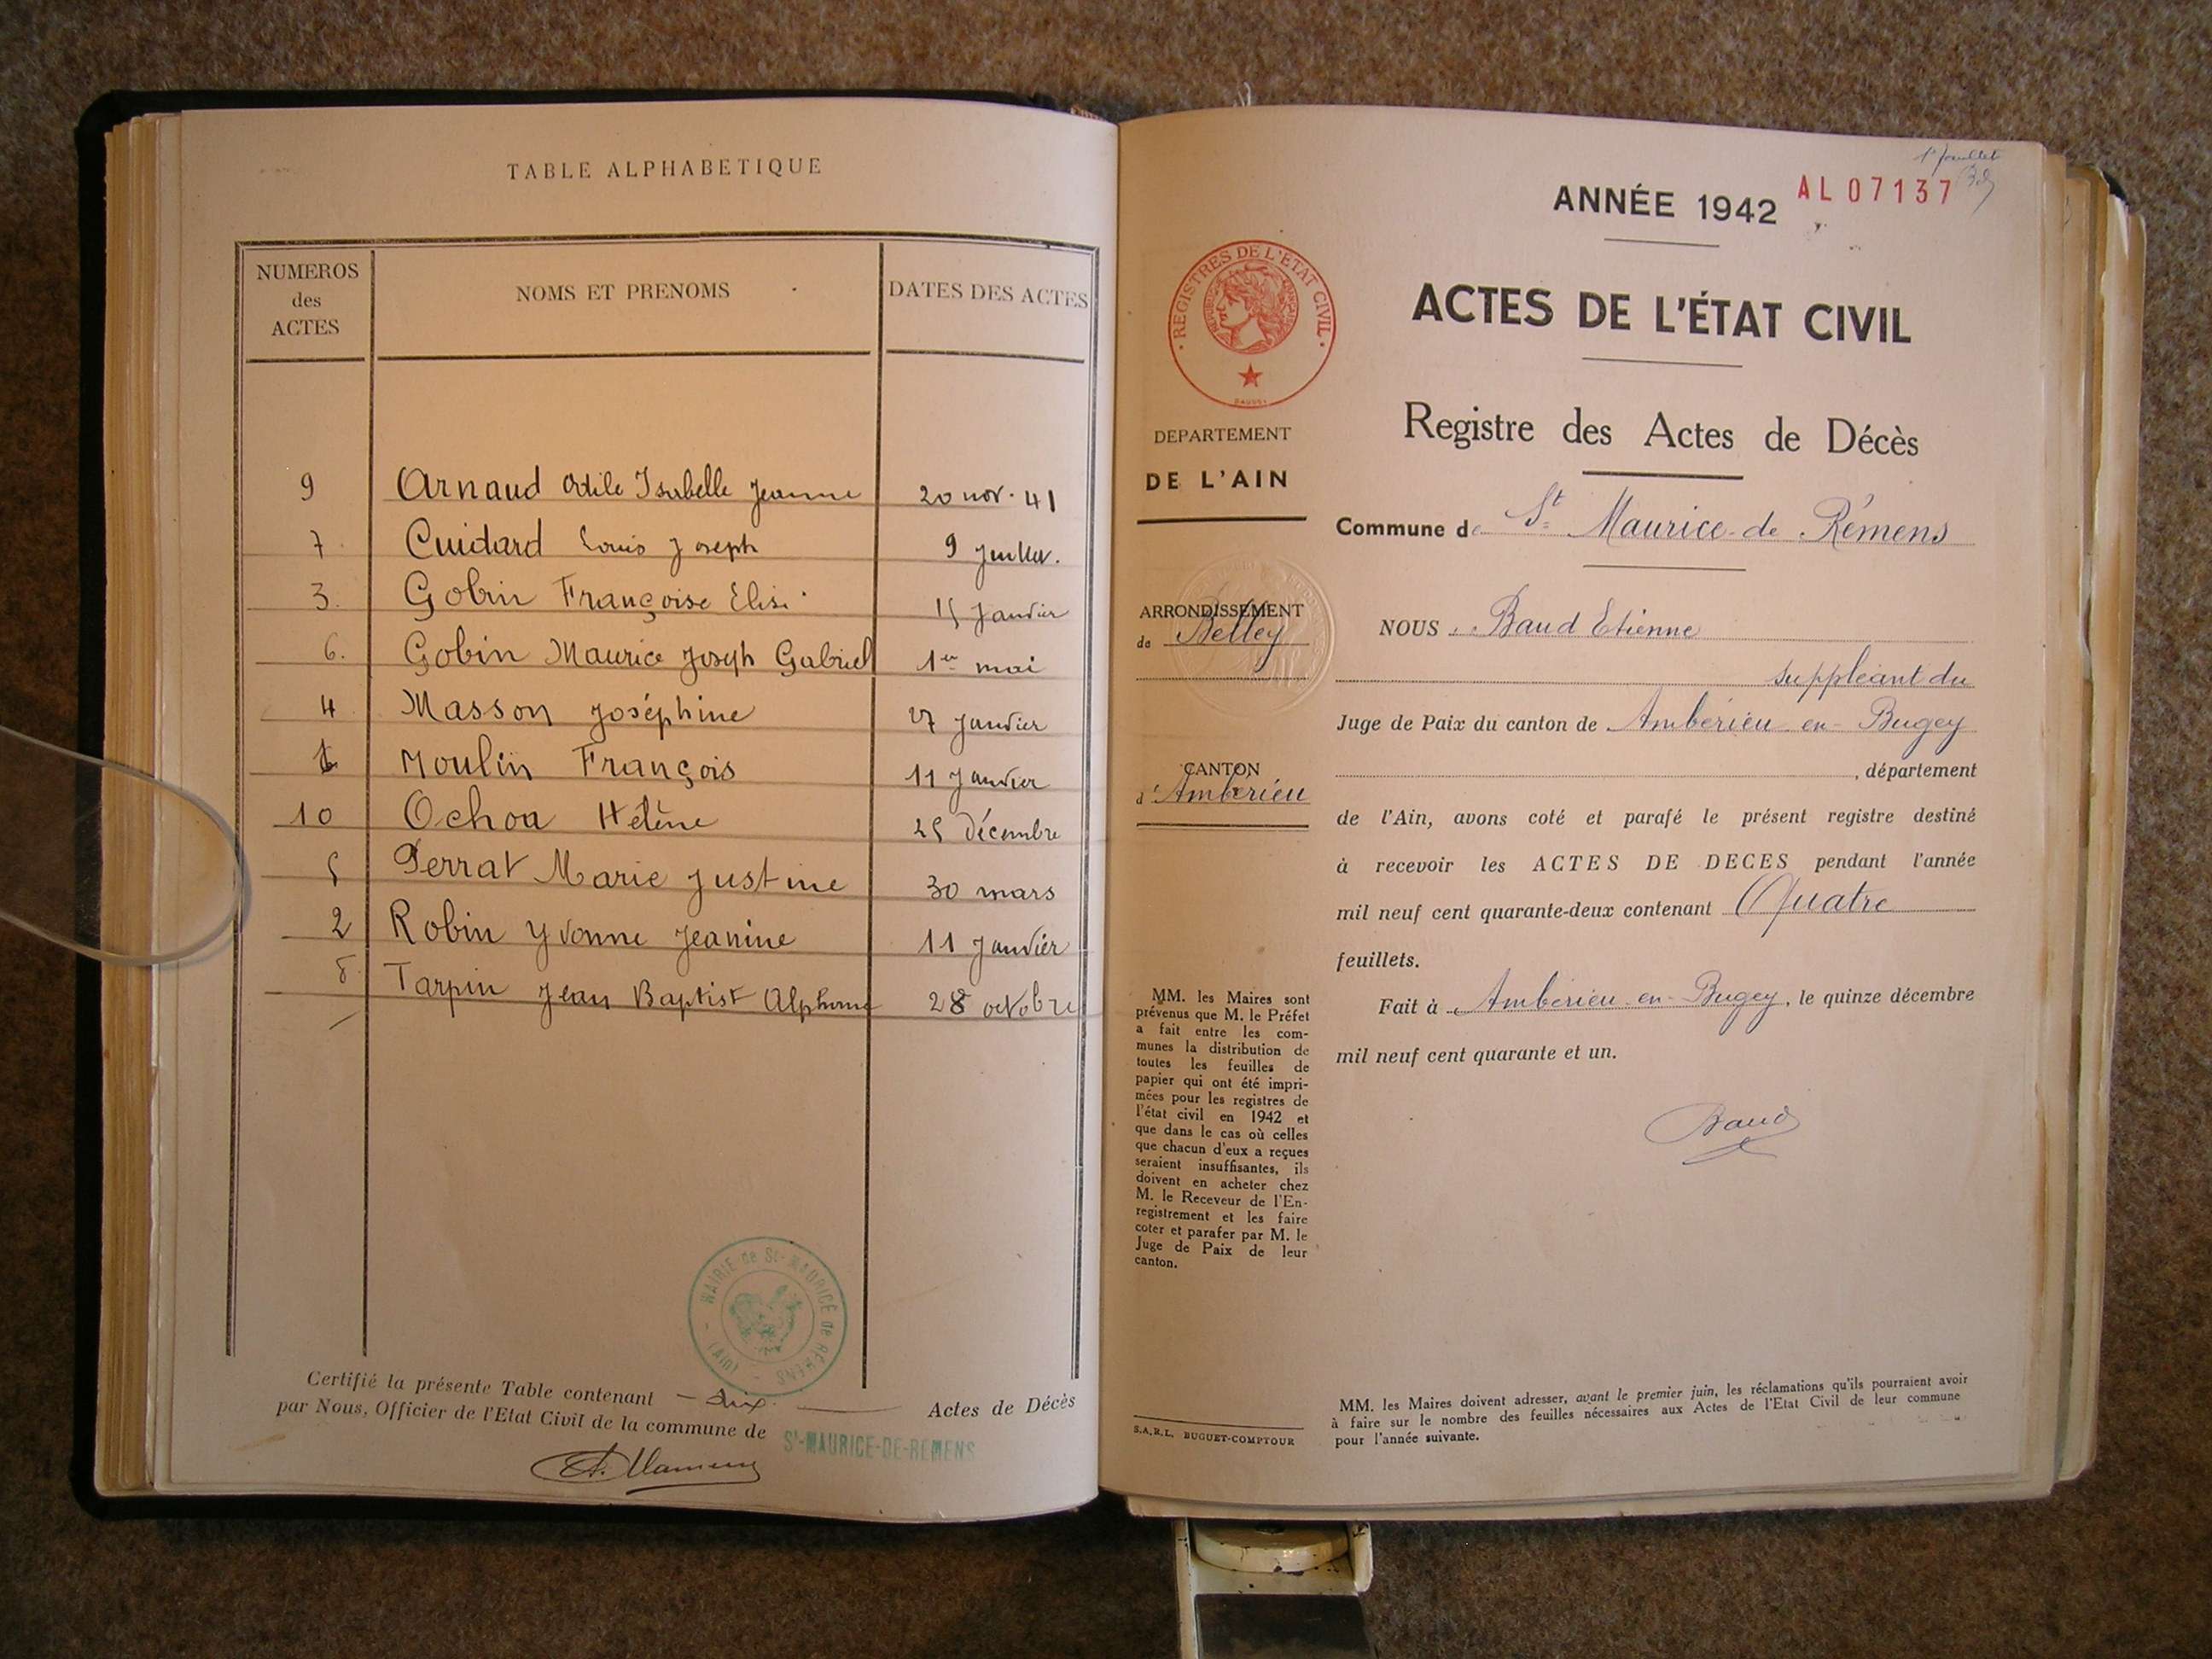 TABLE ALPHABETIQUE
NUMEROS des ACTES
NOMS ET PRENOMS
DATES DES ACTES
9 Arnaud Odile Isabelle Jeanne 20 nov. 41
7 Cuidard Louis Joseph 9 Juillet.
3. Gobin Françoise Elisa 15 Janvier
6. Gobin Maurice Joseph Gabriel 1er mai
4 Masson Joséphine 27 Janvier
1 Moulin François 11 Janvier
10 Ochoa Hélène 25 Décembre
5 Perrat Marie Justine 30 mars
2 Robin Yvonne Jeanine 11 Janvier
8 Tarpin Jean Baptist Alphonse 28 octobre
MAIRIE de St-MAURICE de REMENS (Ain)
Certifié la présente Table contenant — dix — Actes de Décès
par Nous, Officier de l'Etat Civil de la commune de ST-MAURICE-DE-REMENS
1er feuillet
ANNÉE 1942 AL 07137
REGISTRES DE L'ETAT CIVIL
REPUBLIQUE FRANÇAISE
ACTES DE L'ÉTAT CIVIL
Registre des Actes de Décès
DEPARTEMENT
DE L'AIN
Commune de St Maurice-de Rémens
ARRONDISSEMENT
de Belley
CANTON
d'Ambérieu
NOUS Baud Etienne
suppléant du
Juge de Paix du canton de Ambérieu-en-Bugey
, département
de l'Ain, avons coté et parafé le présent registre destiné
à recevoir les ACTES DE DECES pendant l'année
mil neuf cent quarante-deux contenant Quatre
feuillets.
Fait à Ambérieu-en-Bugey, le quinze décembre
mil neuf cent quarante et un.
Baud
MM. les Maires sont
prévenus que M. le Préfet
a fait entre les com-
munes la distribution de
toutes les feuilles de
papier qui ont été impri-
mées pour les registres de
l'état civil en 1942 et
que dans le cas où celles
que chacun d'eux a reçues
seraient insuffisantes, ils
doivent en acheter chez
M. le Receveur de l'En-
registrement et les faire
coter et parafer par M. le
Juge de Paix de leur
canton.
S.A.R.L. BUGUET-COMPTOUR
MM. les Maires doivent adresser, avant le premier juin, les réclamations qu'ils pourraient avoir
à faire sur le nombre des feuilles nécessaires aux Actes de l'Etat Civil de leur commune
pour l'année suivante.